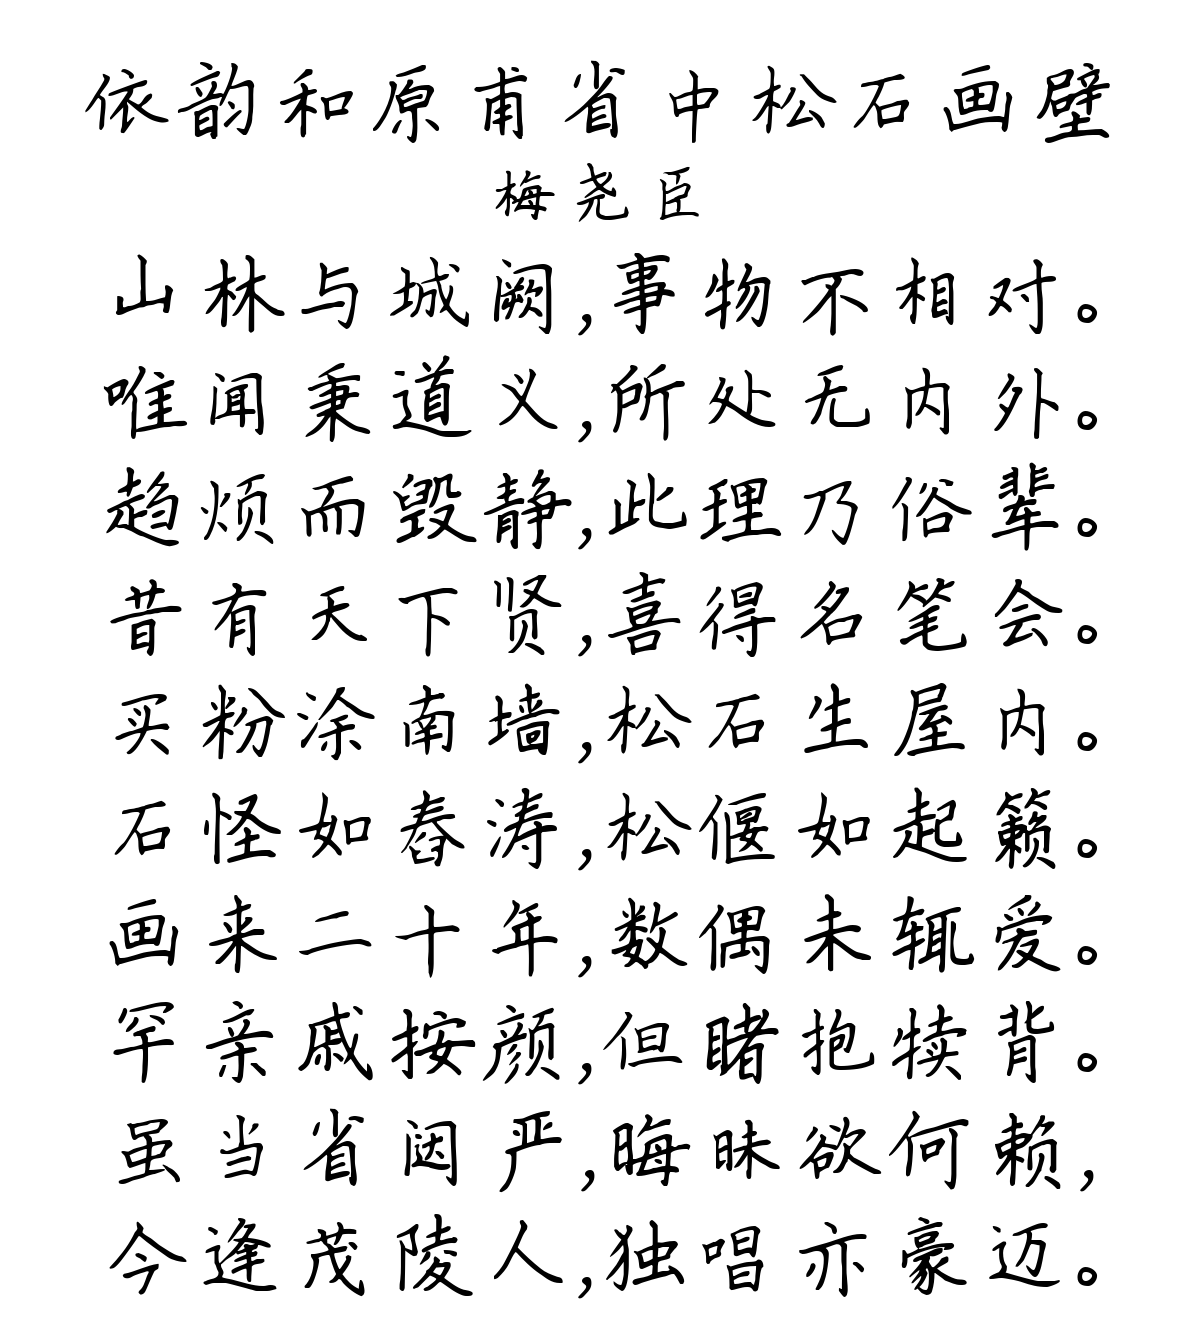 依韵和原甫省中松石画壁
梅尧臣
山林与城阙,事物不相对。
唯闻秉道义,所处无内外。
趋烦而毁静,此理乃俗辈。
昔有天下贤,喜得名笔会。
买粉涂南墙,松石生屋内。
石怪如舂涛,松偃如起籁。
画来二十年,数偶未辄爱。
罕亲戚按颜,但睹抱犊背。
虽当省闼严,晦昧欲何赖,
今逢茂陵人,独唱亦豪迈。